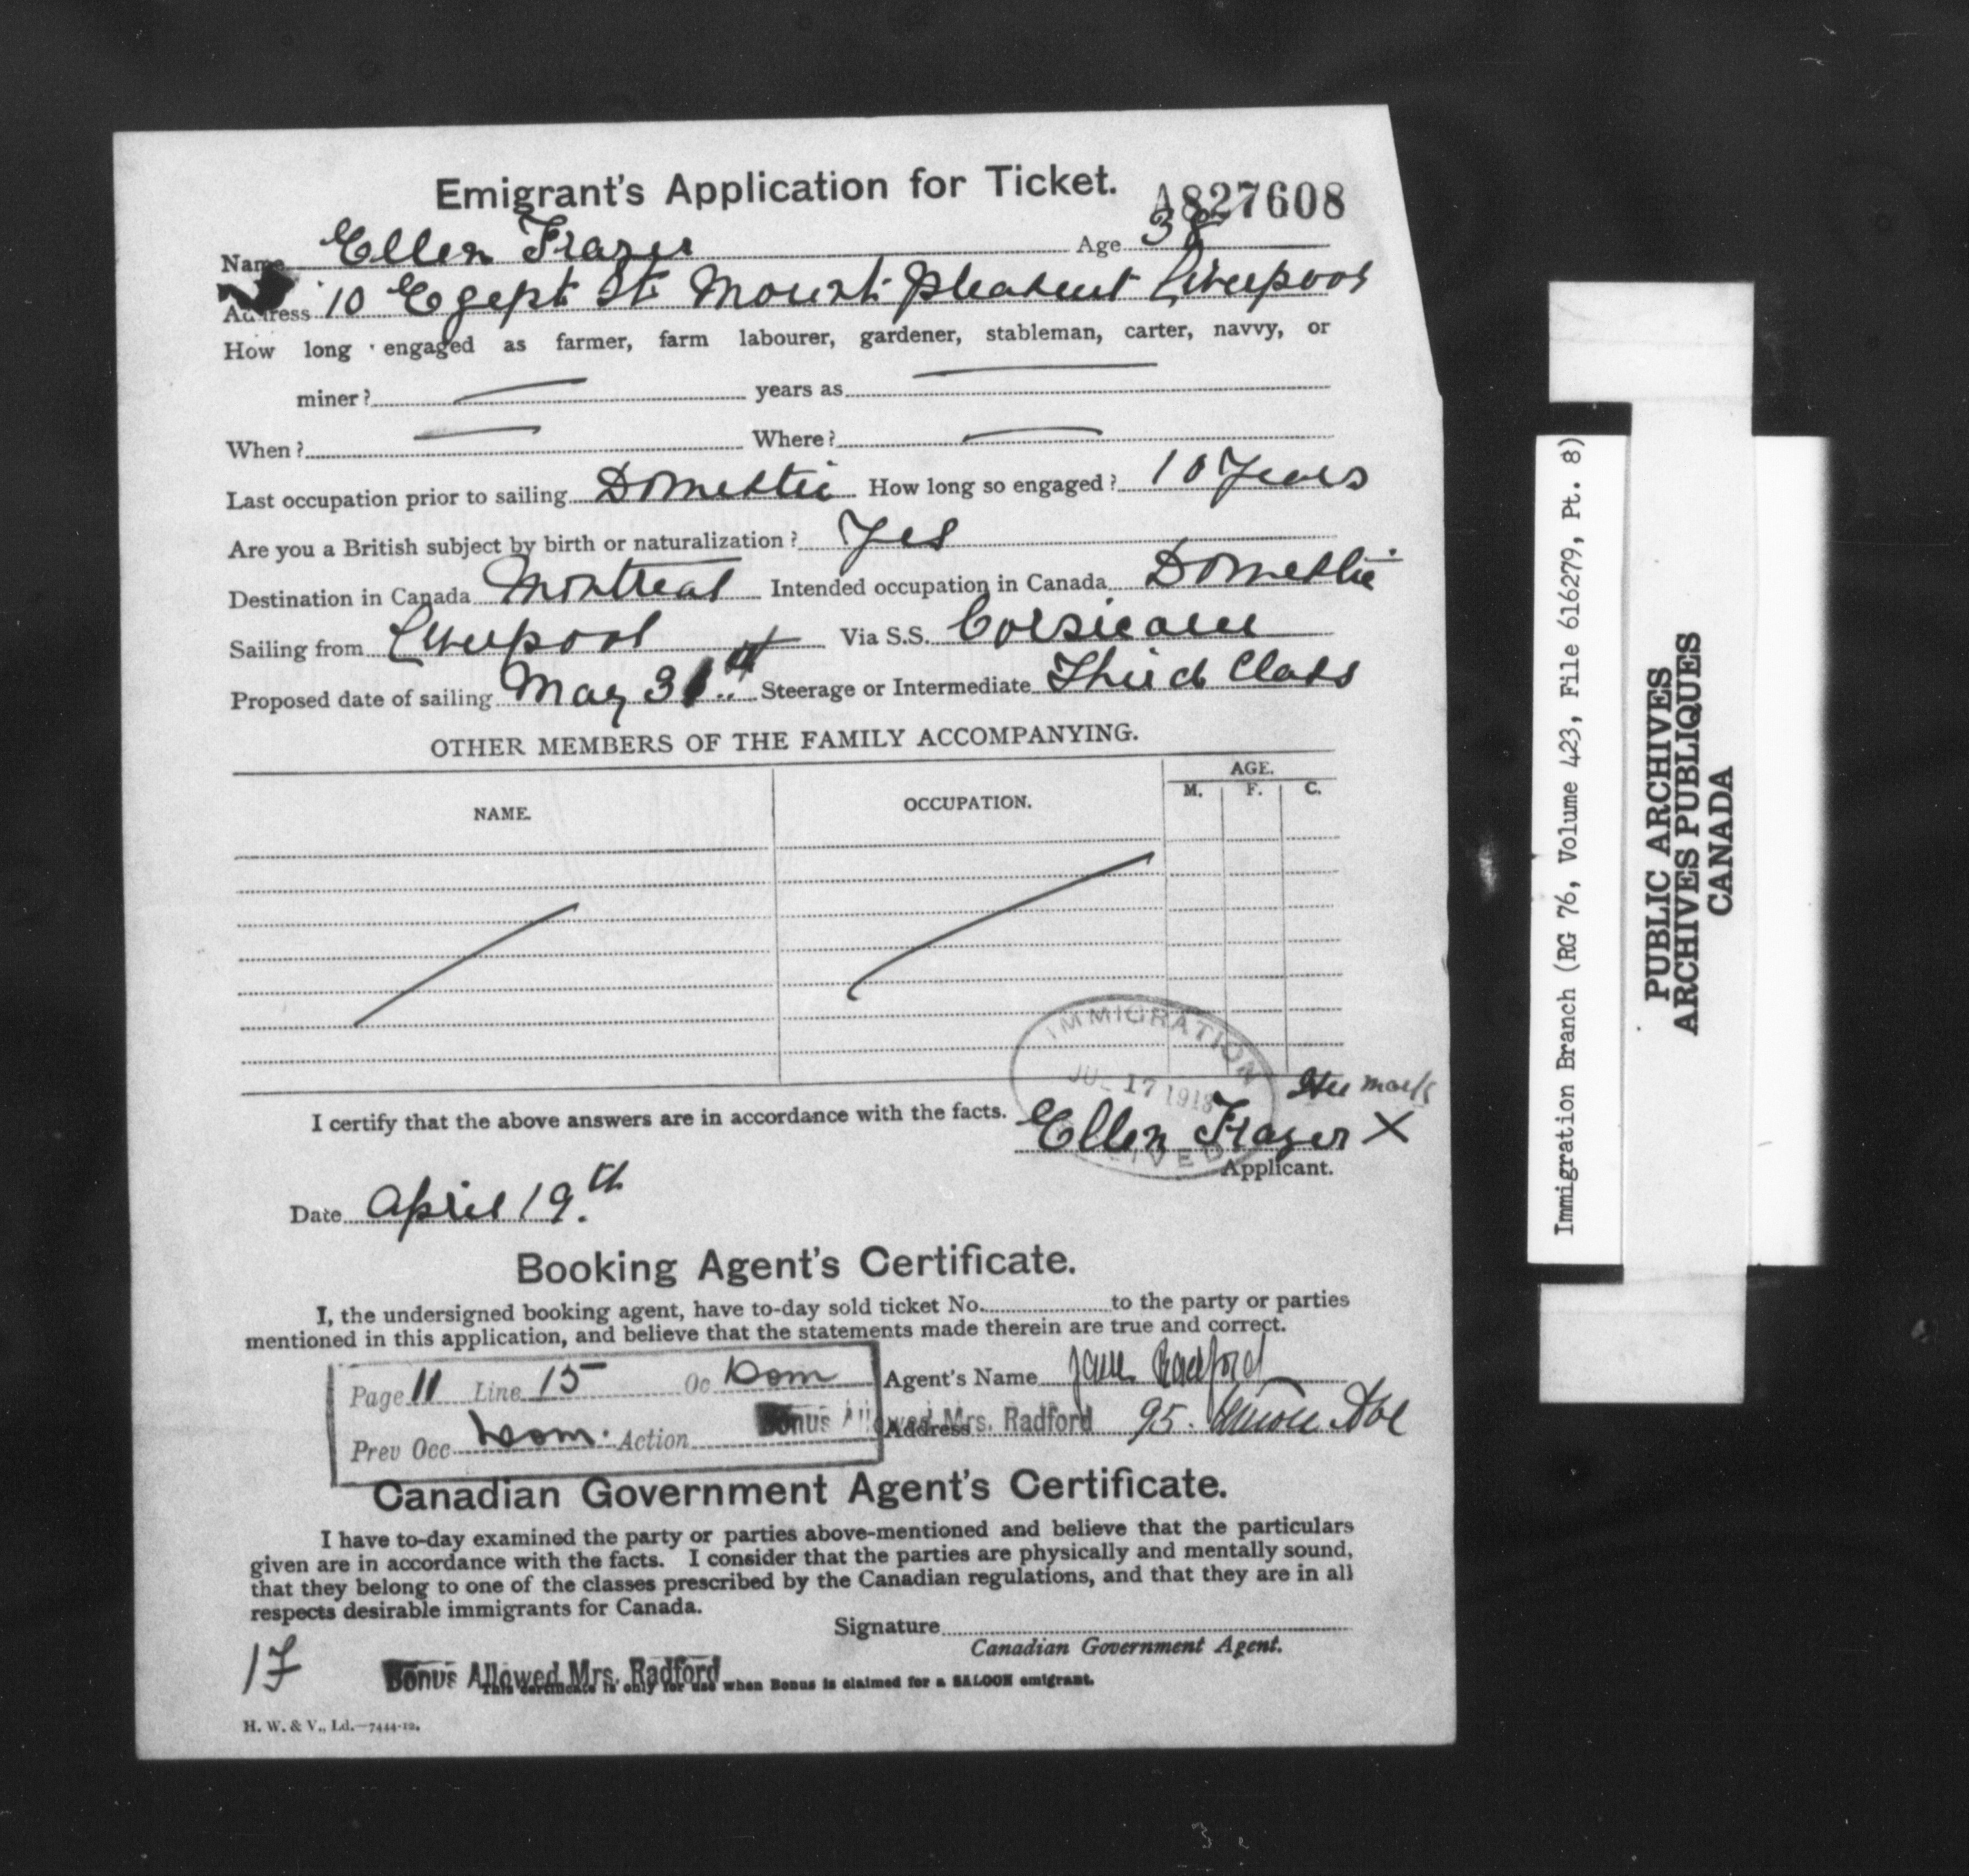 Emigrant's Application for Ticket. A827608
Name Ellen Frazer Age 38
Address 10 Egept St. Mount pleasent Liverpool
How long engaged as farmer, farm labourer, gardener, stableman, carter, navvy, or
miner? — years as —
When? — Where? —
Last occupation prior to sailing Domestic How long so engaged? 10 Years
Are you a British subject by birth or naturalization? Yes
Destination in Canada Montreal Intended occupation in Canada Domestic
Sailing from Liverpool Via S.S. Corsican
Proposed date of sailing May 31st Steerage or Intermediate Third Class
OTHER MEMBERS OF THE FAMILY ACCOMPANYING.
NAME. OCCUPATION. AGE.
M. F. C.
IMMIGRATION
JUL 17 1913
Her mark
I certify that the above answers are in accordance with the facts. Ellen Frazer X
Applicant.
Date April 19.th
Booking Agent's Certificate.
I, the undersigned booking agent, have to-day sold ticket No. to the party or parties
mentioned in this application, and believe that the statements made therein are true and correct.
Page 11 Line 15 Oc Dom Agent's Name Jane Radford
Prev Occ Dom. Action Bonus Allowed Mrs. Radford Address 95. Ave
Canadian Government Agent's Certificate.
I have to-day examined the party or parties above-mentioned and believe that the particulars
given are in accordance with the facts. I consider that the parties are physically and mentally sound,
that they belong to one of the classes prescribed by the Canadian regulations, and that they are in all
respects desirable immigrants for Canada.
Signature
Canadian Government Agent.
17 Bonus Allowed Mrs. Radford
This certificate is only for use when Bonus is claimed for a SALOON emigrant.
H. W. & V., Ld.—7444-12.
Immigration Branch (RG 76, Volume 423, File 616279, Pt. 8)
PUBLIC ARCHIVES
ARCHIVES PUBLIQUES
CANADA